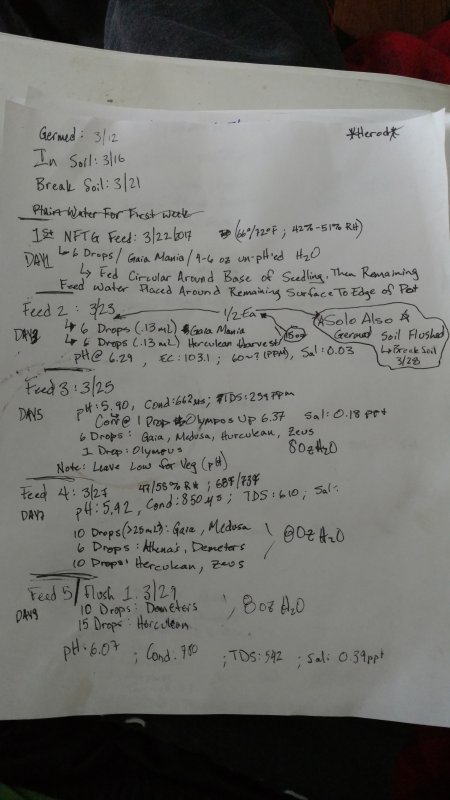 Germed: 3/12
*Herod*
In Soil: 3/16
Break Soil: 3/21
Plain Water For First Week
1st NFTG Feed: 3/22/2017 (66°/72°F ; 42%-51% RH)
DAY1 6 Drops/ Gaia Mania/ 4-6 oz un-pH'ed H2O
Fed Circular Around Base of Seedling, Then Remaining
Feed Water Placed Around Remaining Surface To Edge of Pot
Feed 2: 3/23
1/2 Ea
*Solo Also*
6 Drops (.13mL) Gaia Mania
Germed Soil Flushed
6 Drops (.13mL) Herculean Harvest
Break Soil
3/28
pH@ 6.29, EC: 103.1, 60~? (PPM), Sal: 0.03
Feed 3: 3/25
DAY5 pH: 5.90, Cond: 662µs; TDS: 259 ppm
1 Drop Olympus Up 6.37 Sal: 0.18 ppt
6 Drops: Gaia, Medusa, Hurculean, Zeus
1 Drop: Olympus
8oz H2O
Note: Leave Low for Veg (pH)
Feed 4: 3/27 47/58% RH ; 68°/73°F
DAY7 pH: 5.42, Cond: 850µs ; TDS: 610 ; Sal:
10 Drops : Gaia, Medusa
6 Drops: Athena's, Demeters
8Oz H2O
10 Drops: Herculean, Zeus
Feed 5/ Flush 1. 3/29
DAY9 10 Drops: Demeters
8oz H2O
15 Drops: Herculean
pH: 6.07 ; Cond. 780 ; TDS: 542 ; Sal: 0.39ppt